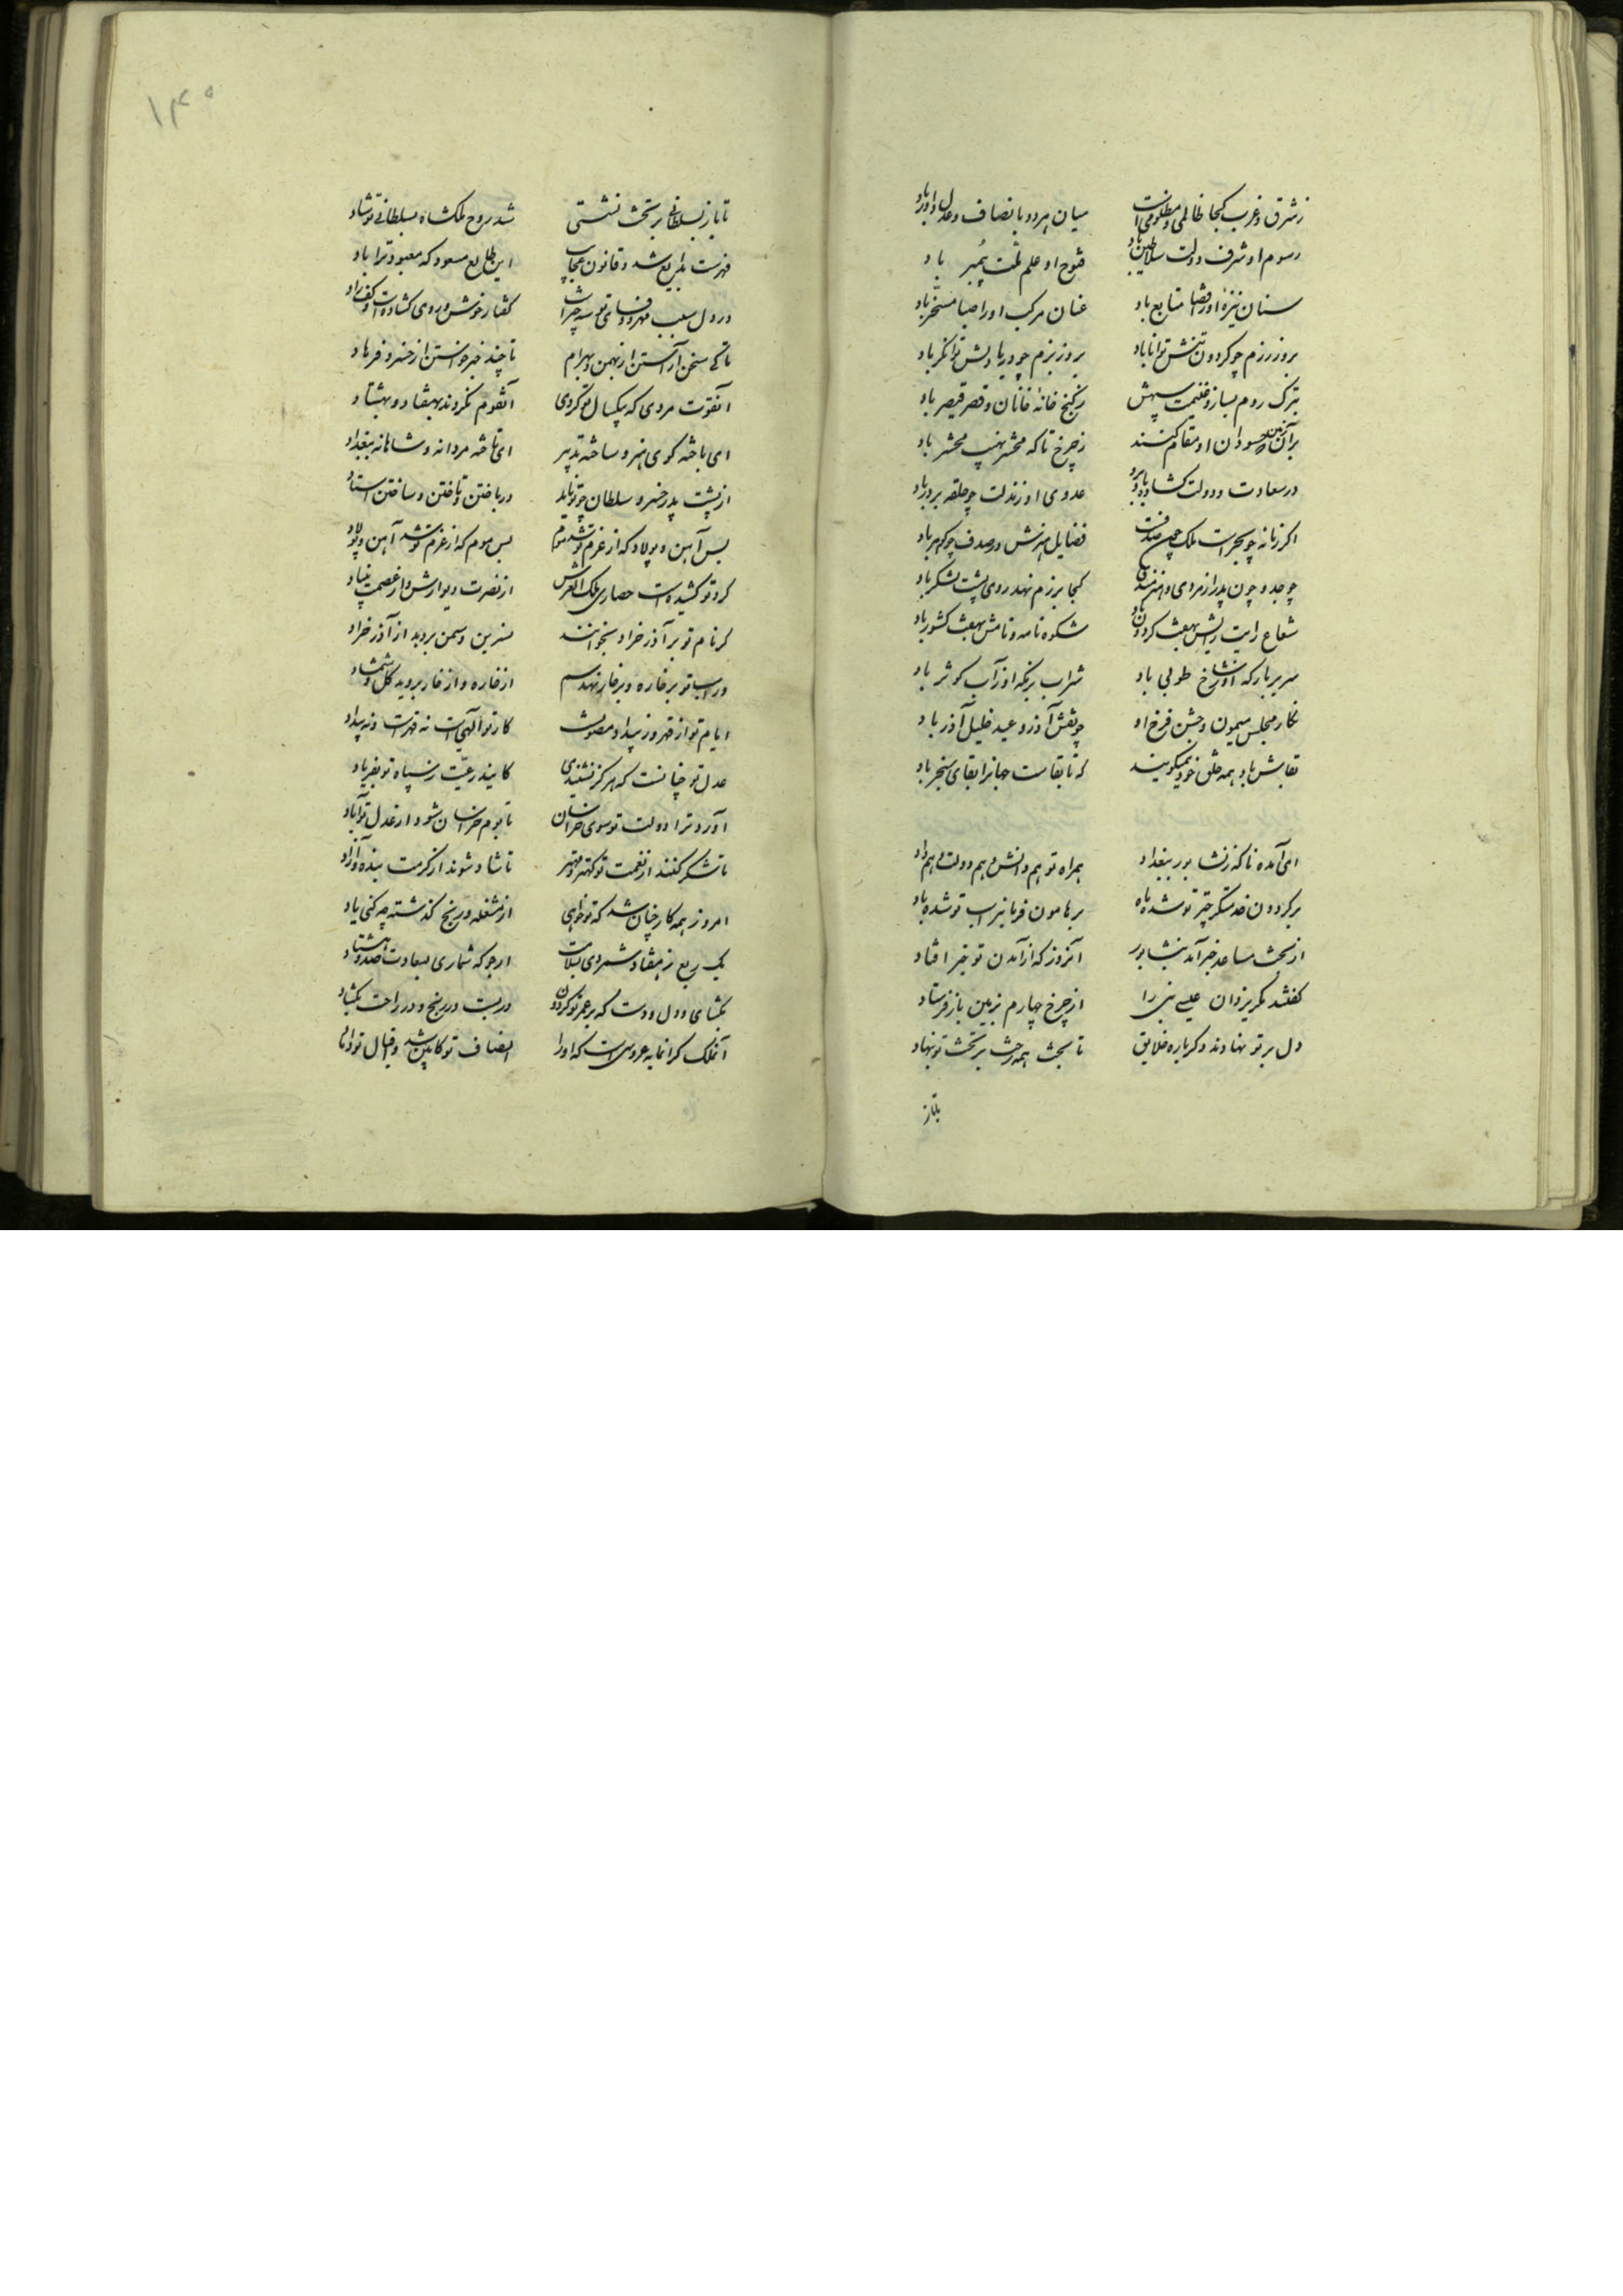 ز شرق و غرب کجا ظالمی و مظلومی است میان هر دو بانصاف و عدل داور باد
رسوم او شرف دولت سلاطین باد فتوح او علم ملت پیمبر باد
سنان نیزهٔ او را قضا متابع باد عنان مرکب او را صبا مسخر باد
بروز رزم چو گردون تنش توانا باد بروز بزم چو دریا دلش توانگر باد
بترک روم بسازد غنیمت سپهش ز گنج خانهٔ خانان و قصر قیصر باد
بر آن زمین که حسودان او مقام کنند ز چرخ تا که محشر نهیب محشر باد
در سعادت و دولت گشاده باد برو عدوی او ز در دولت چو حلقه بر در باد
اگر زمانه چو بحر است ملک چون صدفست فضایل هنرش در صدف چو گوهر باد
چو جد و چون پدر از مردی و هنرمندی کجا برزم نهد روی پشت لشکر باد
شعاع رایت رایش بهفت گردون باد شکوه نامه و نامش بهفت کشور باد
سریر بارکه او ز شاخ طوبی باد شراب بزمگه او ز آب کوثر باد
نگار مجلس میمون و جشن فرخ او چو نقش آذر و عید خلیل آذر باد
بقاش باد همه خلق خود همیگویند که تا بقاست جهانرا بقای سنجر باد
ای آمده ناگه ز نشابور ببغداد همراه تو هم دانش و هم دولت و هم داد
بر گردون خدمتگر چتر تو شده ماه بر هامون فرمانبر اسب تو شده باد
از بخت مساعد خبر آمد بنشابور آنروز که از آمدن تو خبر افتاد
گفتند مگر یزدان عیسی نبی را از چرخ چهارم بزمین باز فرستاد
دل بر تو نهادند دگرباره خلایق تا بخت همه رخت بر تخت تو بنهاد
تا باز
۱۴۰
تا باز بسلطانی بر تخت نشستی شد روح ملکشاه بسلطانی تو شاد
فهرست بدایع شد و قانون عجایب این طالع مسعود که معبود ترا داد
در دل سبب مهر و وفای تو سه چیز است گفتار خوش و روی گشاده است و کف راد
تا کی سخن آراستن از بهمن و بهرام تا چند خبر خواستن از خسرو و فرهاد
آنقوت مردی که بیکسال تو کردی آنقوم نکردند بهفتاد و بهشتاد
ای باخته گوی هنر و ساخته تدبیر ای تاخته مردانه و شاهانه ببغداد
از پشت پدر خسرو و سلطان چو تو ناید در باختن و تاختن و ساختن استاد
بس آهن و پولاد که از عزم تو شد موم بس موم که از عزم تو شد آهن و پولاد
گرد تو کشیده است حصاری ملک العرش از نصرت دیوارش و از عصمت بنیاد
گر نام تو بر آذر خراد بخوانند نسرین و سمن بردمد از آذر خراد
ور اسب تو بر خاره و بر خار نهد سم از خاره و از خار بروید گل و شمشاد
ایام تو از قهر و ز بیداد مصونست کار تو الهیست نه قهرست و نه بیداد
عدل تو چنانست که هرگز نشنیدی کاید ز رعیت ز سپاه تو بفریاد
آورد ترا دولت تو سوی خراسان تا بوم خراسان شود از عدل تو آباد
تا شکر کنند از نعمت تو کهتر و مهتر تا شاد شوند از کرمت بنده و آزاد
امروز همه کار چنان شد که تو خواهی از مشغله و رنج گذشته چه کنی یاد
یک ربع ز هفتاد شمردی بسلامت ارجو که شماری بسعادت صد و هشتاد
بگشای در دل و دست که بر عمر تو گردون در بست در رنج و در راحت بگشاد
آنملک گرانمایه عروسی است که او را انصاف تو کابین شد و اقبال تو داماد